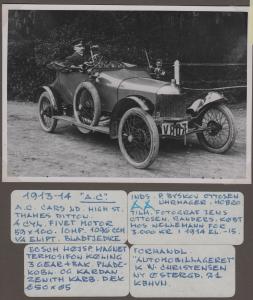 1913-14 "A.C."
A.C. CARS LD. HIGH ST.
THAMES DITTON.
4 CYL. FIVET MOTOR
59 x 100. 10 HP. 1096 ccm
1/4 ELIPT. BLADFJEDRE
BOSCH HØJSP. MAGNET
TERMOSIFON KØLING
3 GEAR + BAK. PLADE-
KOBL. OG KARDAN
ZENITH KARB. DÆK
650 x 65
INDS. P. BYSKOV OTTOSEN
URHMAGER. HOBRO
TILH. FOTOGRAF JENS
OTTOSEN, RANDERS. KØBT
HOS NELLEMANN FOR
3.000 KR. I 1914 EL. -15.
FORHANDL.
"AUTOMOBILLAGERET"
K. W. CHRISTENSEN
N. ØSTERGD. 21
KBHVN.